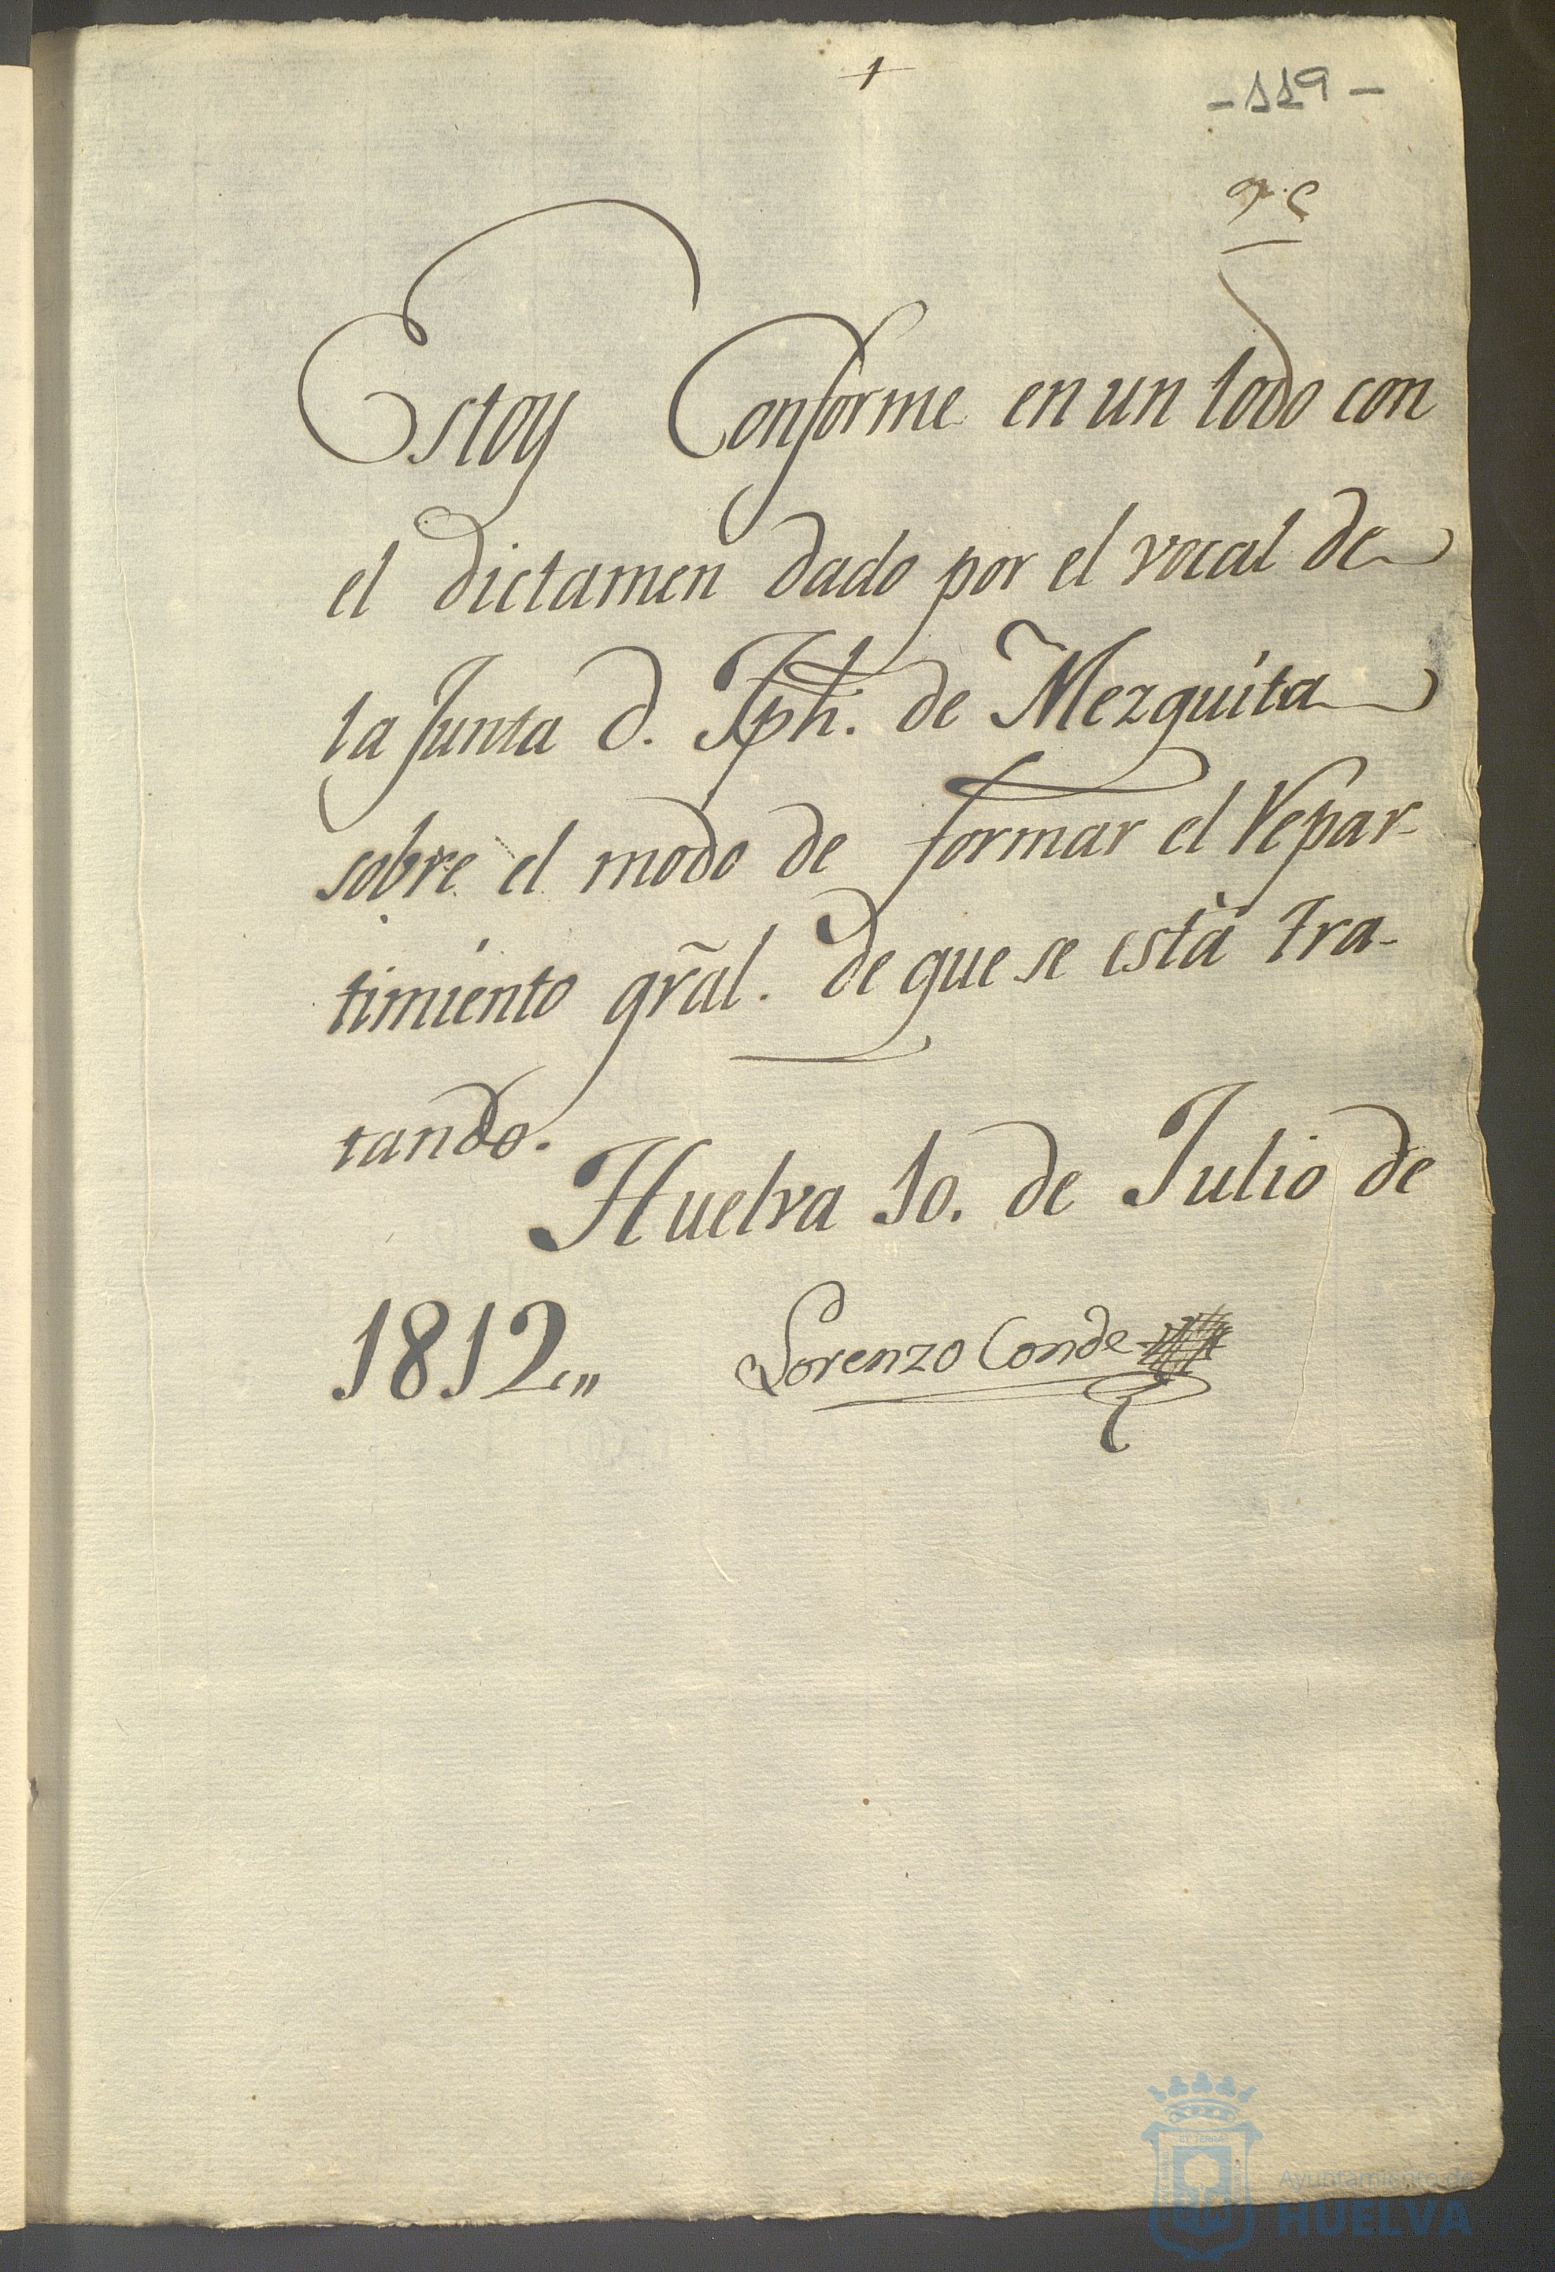 -119-
Estoy Conforme en un todo con
el dictamen dado por el vocal de
la Junta d. Jph. de Mezquita
sobre el modo de formar el Repar-
timiento gr̃al. de que se està tra-
tando.
Huelva 10. de Julio de
1812,,
Lorenzo Conde
Ayuntamiento de
HUELVA